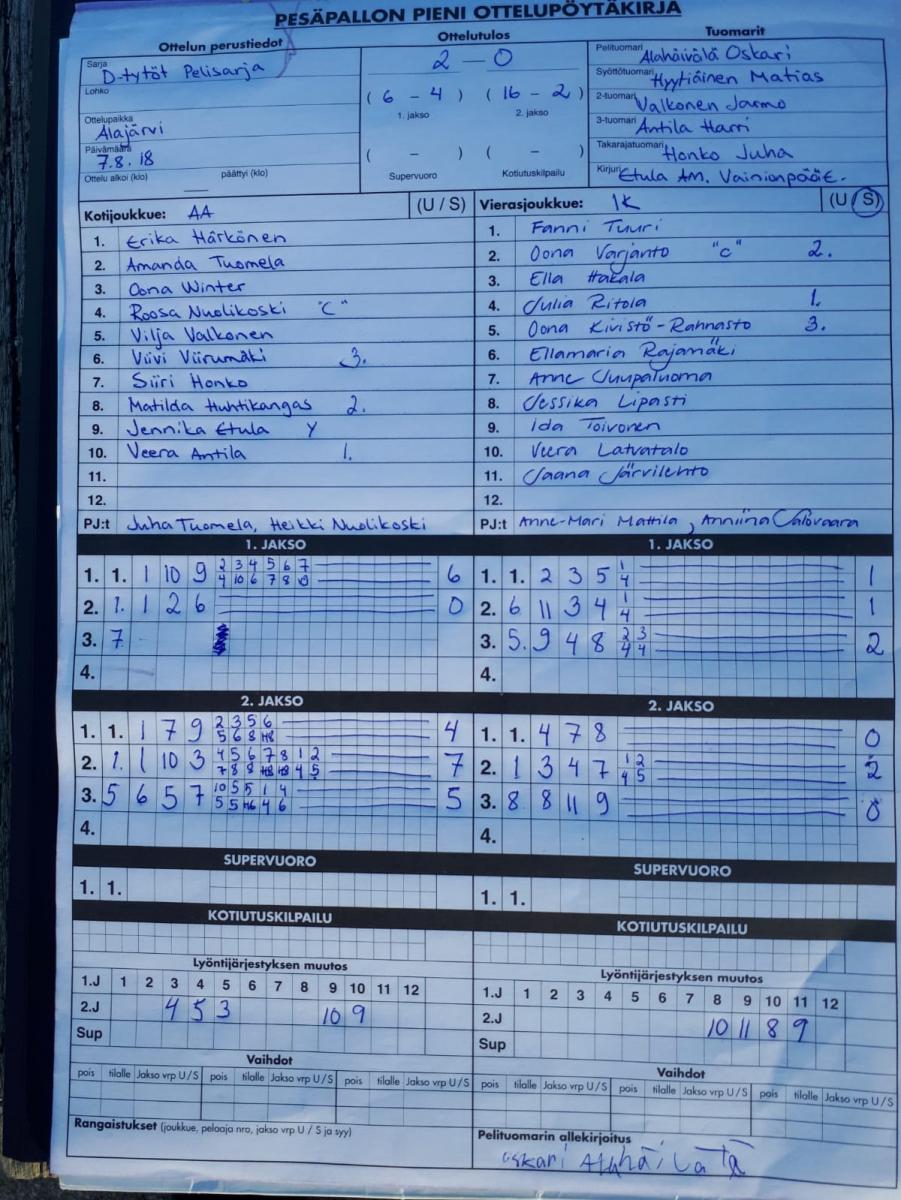 PESÄPALLON PIENI OTTELUPÖYTÄKIRJA
Ottelun perustiedot
Sarja D-tytöt Pelisarja
Lohko
Ottelupaikka Alajärvi
Päivämäärä 7.8.18
Ottelu alkoi (klo) päättyi (klo)
Ottelutulos
2 - 0
( 6 - 4 ) ( 16 - 2 )
1. jakso 2. jakso
( - ) ( - )
Supervuoro Kotiutuskilpailu
Tuomarit
Pelituomari Alahäivälä Oskari
Syöttötuomari Hyytiäinen Matias
2-tuomari Valkonen Jarmo
3-tuomari Antila Harri
Takarajatuomari Honko Juha
Kirjuri Etula AM. Vainionpää E.
Kotijoukkue: AA (U / S)
1. Erika Härkönen
2. Amanda Tuomela
3. Oona Winter
4. Roosa Nuolikoski "C"
5. Vilja Valkonen
6. Viivi Viirumäki 3.
7. Siiri Honko
8. Matilda Huhtikangas 2.
9. Jennika Etula Y
10. Veera Antila 1.
11.
12.
PJ:t Juha Tuomela, Heikki Nuolikoski
Vierasjoukkue: IK (U / S)
1. Fanni Tuuri
2. Oona Varjanto "c" 2.
3. Ella Hakala
4. Julia Ritola 1.
5. Oona Kivistö-Rahnasto 3.
6. Ellamaria Rajamäki
7. Anne Juupaluoma
8. Jessika Lipasti
9. Ida Toivonen
10. Veera Latvatalo
11. Jaana Järvilehto
12.
PJ:t Anne-Mari Mattila, Anniina
1. JAKSO
1. 1. 1 10 9 2 3 4 5 6 7 6
4 10 6 7 8 10
2. 1. 1 2 6 0
3. 7
4.
1. JAKSO
1. 1. 2 3 5 1 1
4
2. 6 11 3 4 1 1
4
3. 5. 9 4 8 2 3 2
4 4
4.
2. JAKSO
1. 1. 1 7 9 2 3 5 6 4
5 6 8
2. 1. 1 10 3 4 5 6 7 8 1 2 7
7 8 8 4 5
3. 5 6 5 7 10 5 5 1 4 5
5 5 4 6
4.
2. JAKSO
1. 1. 4 7 8 0
2. 1 3 4 7 1 2 2
4 5
3. 8 8 11 9 0
4.
SUPERVUORO
1. 1.
SUPERVUORO
1. 1.
KOTIUTUSKILPAILU
KOTIUTUSKILPAILU
Lyöntijärjestyksen muutos
1.J 1 2 3 4 5 6 7 8 9 10 11 12
2.J 4 5 3 10 9
Sup
Lyöntijärjestyksen muutos
1.J 1 2 3 4 5 6 7 8 9 10 11 12
2.J 10 11 8 9
Sup
Vaihdot
pois tilalle Jakso vrp U / S pois tilalle Jakso vrp U / S pois tilalle Jakso vrp U / S
Vaihdot
pois tilalle Jakso vrp U / S pois tilalle Jakso vrp U / S pois tilalle Jakso vrp U / S
Rangaistukset (joukkue, pelaaja nro, jakso vrp U / S ja syy)
Pelituomarin allekirjoitus
Oskari